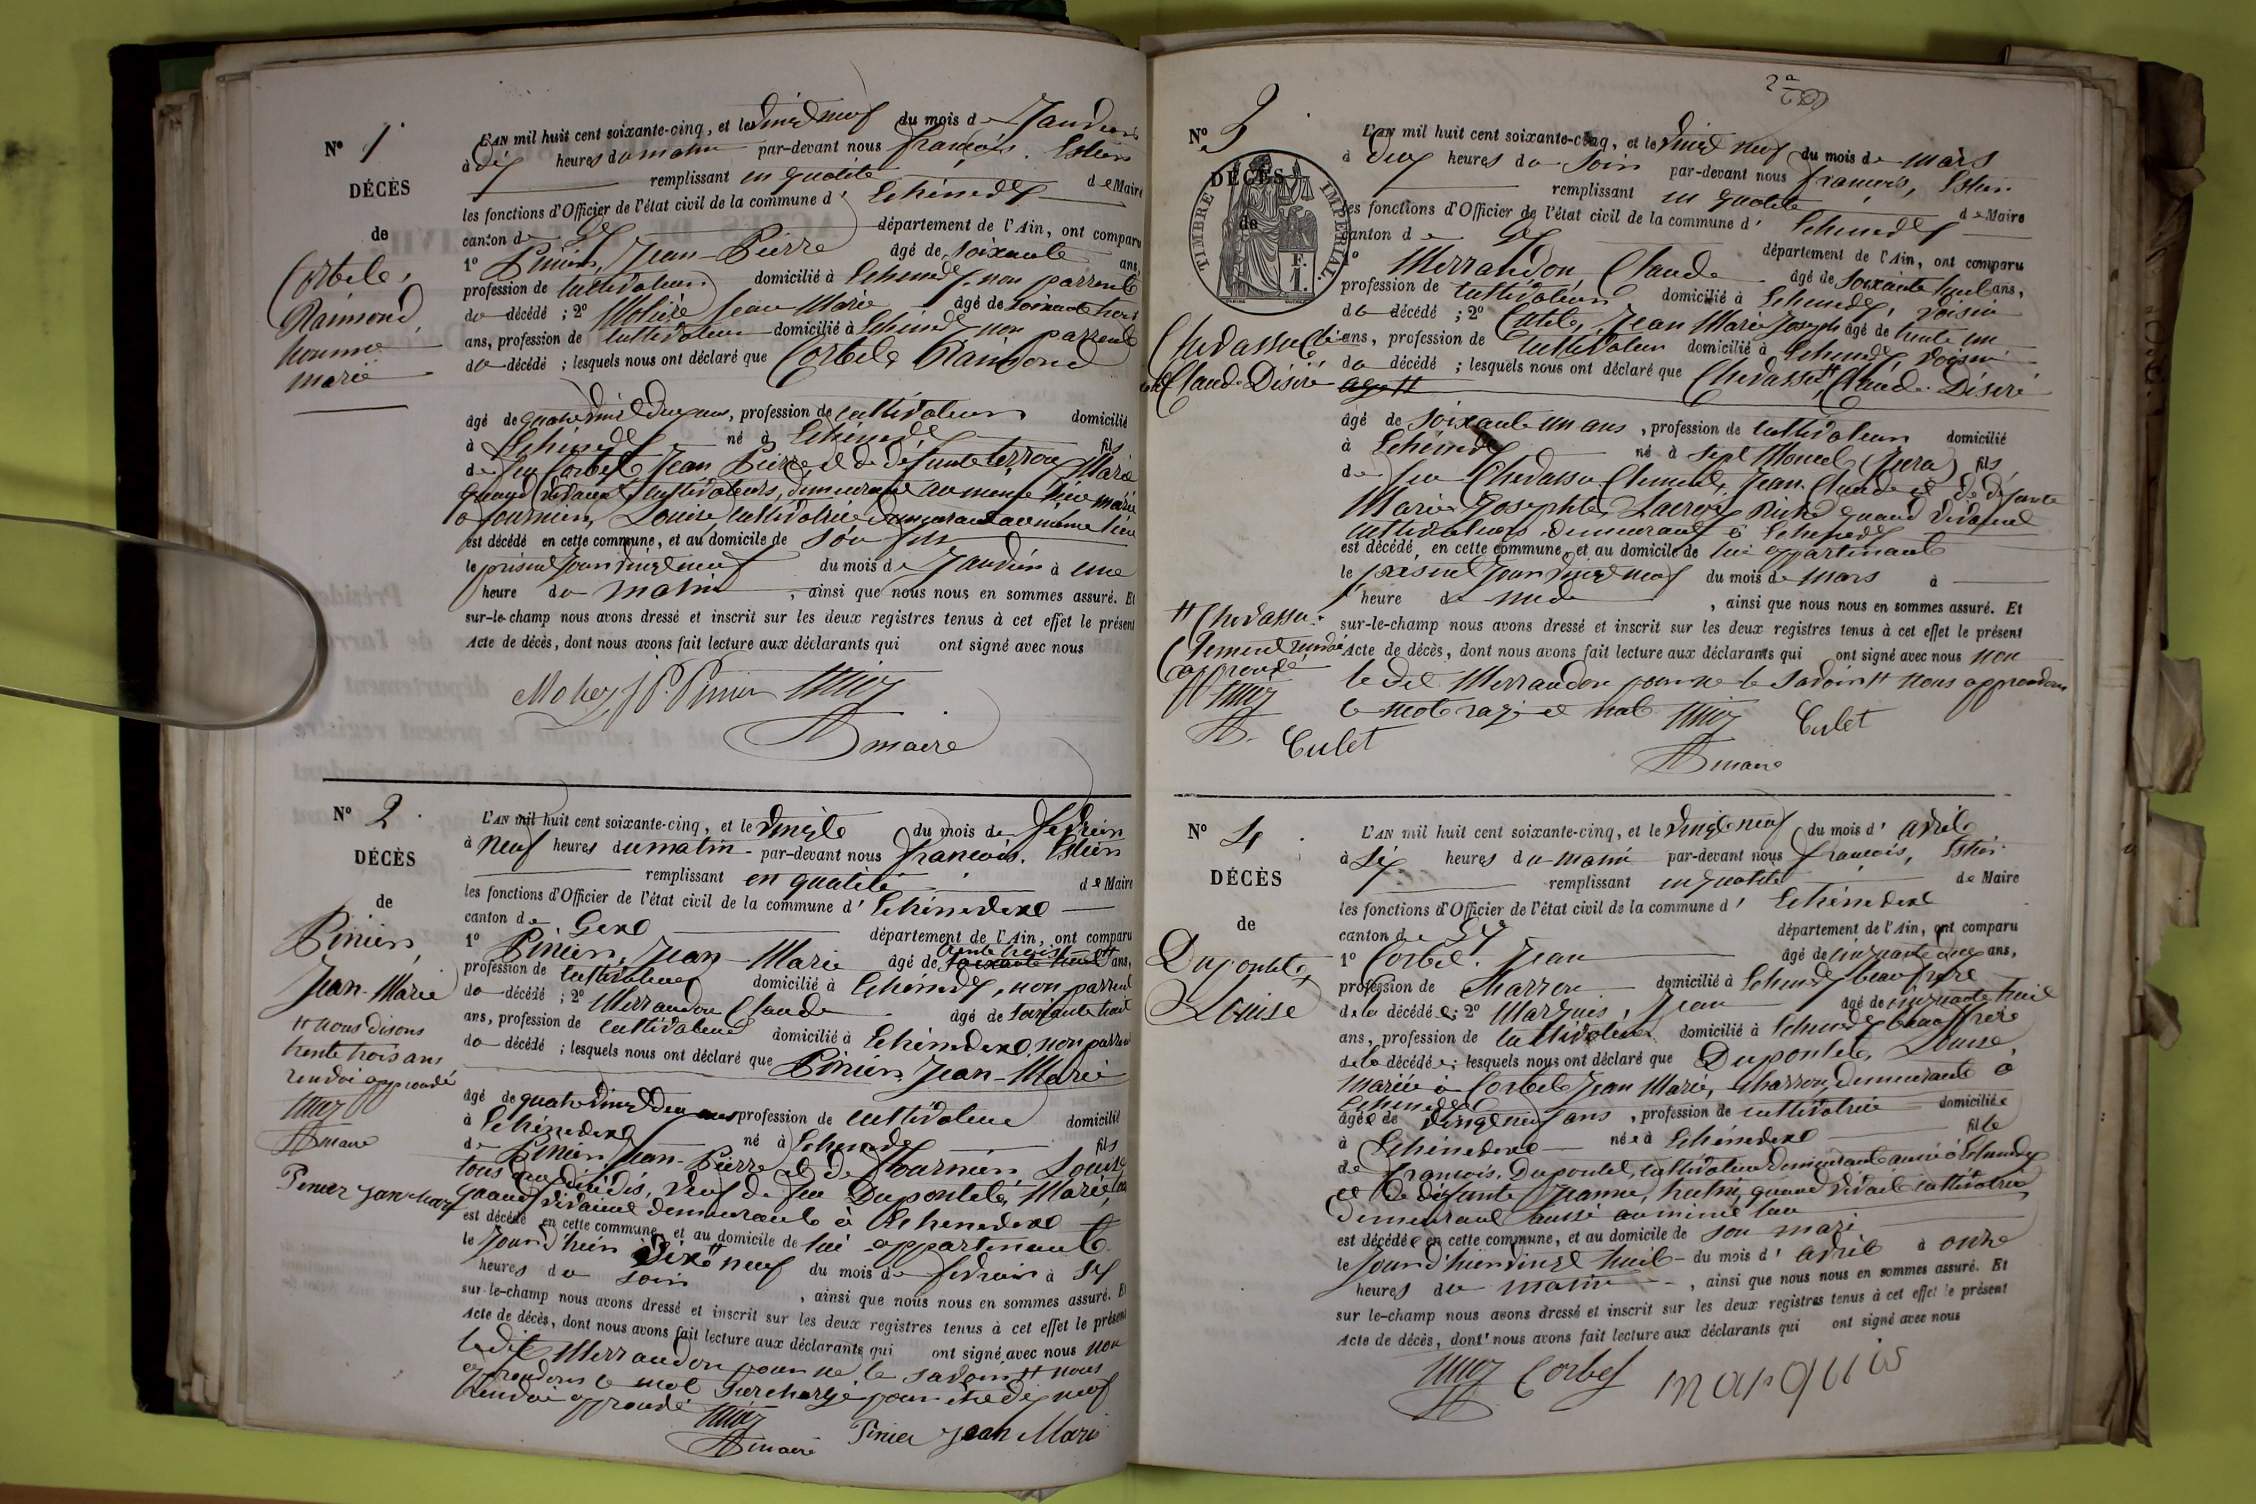 N° 1
DÉCÈS
de
Corbet,
Raimond
homme
marié
L'AN mil huit cent soixante-cinq, et le vingt neuf du mois de Janvier
à dix heures du matin par-devant nous françois. Estier
remplissant en qualité de Maire
les fonctions d'Officier de l'état civil de la commune d' Echenevex
canton de Gex département de l'Ain, ont comparu
1° Pinier, Jean-Pierre âgé de soixante ans,
profession de cultivateur domicilié à Echenevex, non parrent
du décédé ; 2° Jean Marie âgé de soixante trois
ans, profession de cultivateur domicilié à Echenevex non parrent
du décédé ; lesquels nous ont déclaré que Corbet Raimond
âgé de quatre vingt deux ans, profession de cultivateur domicilié
à Echenevex né à Echenevex fils
de feu Corbet Jean Pierre, et de défunte Marie
quand vivaient cultivateurs, demeurant au même lieu marié
à fournier, Louise, cultivatrice demeurant au même lieu
est décédé en cette commune, et au domicile de son fils
le présent jour vingt neuf du mois de Janvier à une
heure du matin, ainsi que nous nous en sommes assuré. Et
sur-le-champ nous avons dressé et inscrit sur les deux registres tenus à cet effet le présent
Acte de décès, dont nous avons fait lecture aux déclarants qui ont signé avec nous
J P. Pinier
maire
N° 2
DÉCÈS
de
Pinier,
Jean-Marie
# nous disons
trente trois ans
renvoi approuvé
maire
Pinier jean Mary
L'AN mil huit cent soixante-cinq, et le vingt du mois de fevrier
à neuf heures du matin par-devant nous françois. Estier
remplissant en qualité de Maire
les fonctions d'Officier de l'état civil de la commune d' Echenevex
canton de Gex département de l'Ain, ont comparu
1° Pinier, Jean-Marie âgé de trente trois ans,
profession de cultivateur domicilié à Echenevex, non parrent
du décédé ; 2° Merrandon Claude âgé de soixante huit
ans, profession de cultivateur domicilié à Echenevex, non parrent
du décédé ; lesquels nous ont déclaré que Pinier, Jean-Marie
âgé de quatre vingt deux ans profession de cultivateur domicilié
à Echenevex né à Echenevex fils
de Pinier Jean-Pierre et de fournier, Louise
tous deux décédés, veuf de feu Dupontet, Marie,
quand vivaient demeurant à Echenevex
est décédé en cette commune, et au domicile de lui appartenant
le jour d'hier dix# neuf du mois de fevrier à six
heures du soir, ainsi que nous nous en sommes assuré. Et
sur-le-champ nous avons dressé et inscrit sur les deux registres tenus à cet effet le présent
Acte de décès, dont nous avons fait lecture aux déclarants qui ont signé avec nous non
le dit Merrandon pour ne le savoir # nous
approuvons le mot surchargé pour être dix neuf
renvoi approuvé
maire Pinier jean Marie
N° 3
TIMBRE IMPERIAL.
F.
1.
DÉCÈS
de
Claude Désiré
# Chevassu.
Clement renvoi
approuvé
Culet
L'AN mil huit cent soixante-cinq, et le vingt neuf du mois de mars
à deux heures du soir par-devant nous françois, Estier
remplissant en qualité de Maire
les fonctions d'Officier de l'état civil de la commune d' Echenevex
canton de Gex département de l'Ain, ont comparu
1° Merrandon Claude âgé de soixante huit ans,
profession de cultivateur domicilié à Echenevex, voisin
du décédé ; 2° Jean Marie Joseph âgé de trente un
ans, profession de cultivateur domicilié à Echenevex voisin
du décédé ; lesquels nous ont déclaré que Chevassu # Claude Désiré
âgé de soixante un ans, profession de cultivateur domicilié
à Echenevex né à sept Moncel (Jura) fils
de feu Chevassu Clement, Jean Claude et de défunte
Marie Josephte Lacroix quand vivaient
cultivateurs, demeurant à Echenevex
est décédé, en cette commune, et au domicile de lui appartenant
le présent jour vingt neuf du mois de mars à
heure de midi, ainsi que nous nous en sommes assuré. Et
sur-le-champ nous avons dressé et inscrit sur les deux registres tenus à cet effet le présent
Acte de décès, dont nous avons fait lecture aux déclarants qui ont signé avec nous non
le dit Merrandon pour ne le savoir # nous approuvons
le mot razé et nul Culet
maire
N° 4
DÉCÈS
de
Dupontet,
Louise
L'AN mil huit cent soixante-cinq, et le vingt neuf du mois d' avril
à six heures du matin par-devant nous françois, Estier
remplissant en qualité de Maire
les fonctions d'Officier de l'état civil de la commune d' Echenevex
canton de Gex département de l'Ain, ont comparu
1° Corbet. Jean âgé de cinquante deux ans,
profession de Charron domicilié à Echenevex beau frère
de la décédée ; 2° Marquis, Jean âgé de cinquante huit
ans, profession de cultivateur domicilié à Echenevex beau frère
de la décédée ; lesquels nous ont déclaré que Dupontet, Louise
mariée à Corbet Jean Marie, Charron, demeurant à
Echenevex
âgée de vingt neuf ans, profession de cultivatrice domiciliée
à Echenevex née à Echenevex fille
de françois, Dupontet, cultivateur demeurant aussi à Echenevex
et de défunte Jeanne, quand vivait cultivatrice
demeurant aussi au même lieu
est décédée en cette commune, et au domicile de son mari
le jour d'hier vingt huit du mois d' avril à onze
heures du matin, ainsi que nous nous en sommes assuré. Et
sur le-champ nous avons dressé et inscrit sur les deux registres tenus à cet effet le présent
Acte de décès, dont nous avons fait lecture aux déclarants qui ont signé avec nous
Corbet marquis